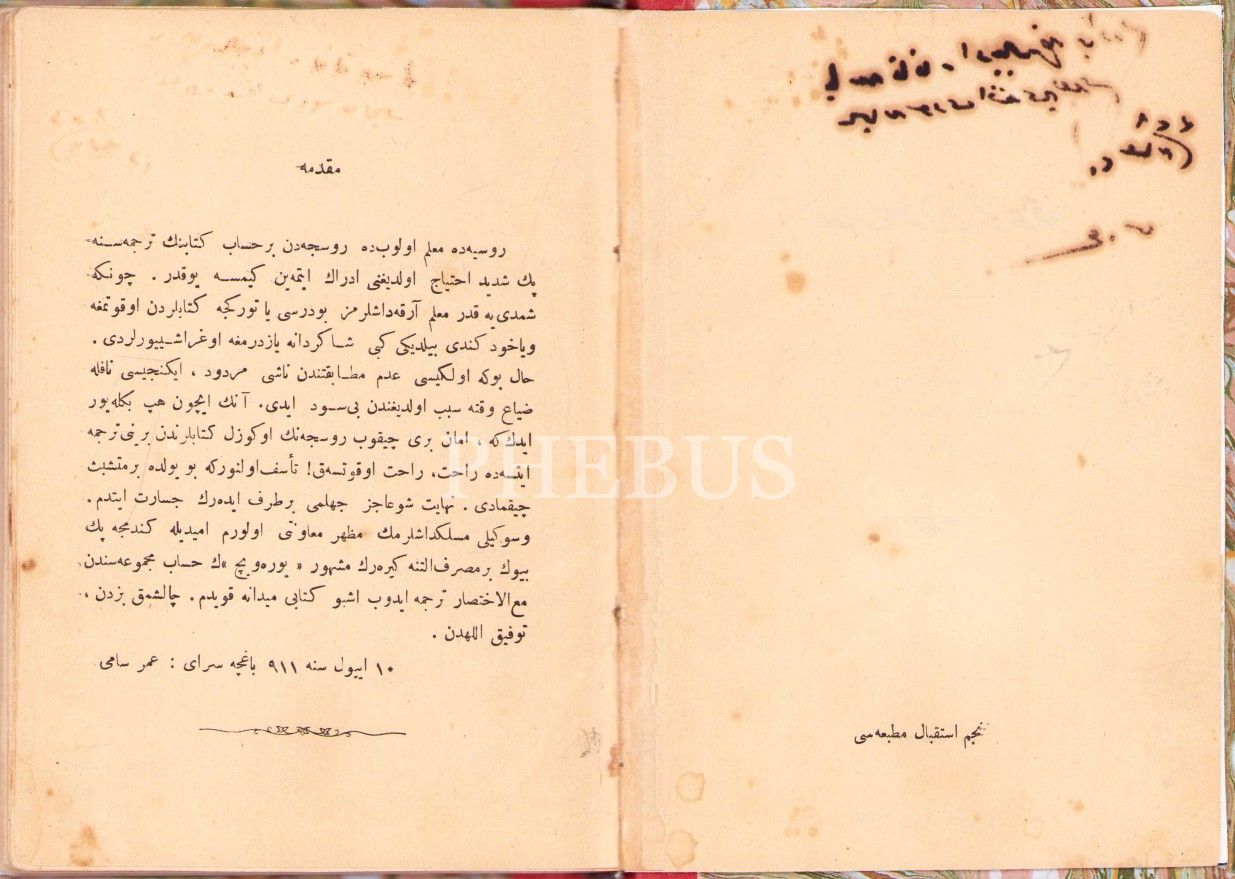 مقدمه
روسیه‌ده معلم اولوب‌ده روسجه‌دن برحساب كتابنك ترجمه‌سـنه
پك شدید احتیاج اولدیغنی ادراك ایتمه‌ین كیمسـه یوقدر . چونكه
شمدی‌یه قدر معلم آرقه‌داشلرمز بودرسی یا توركجه كتابلردن اوقوتمغه
ویاخود كندی بیلدیكی كبی شـاكردانه یازدرمغه اوغراشـیورلردی .
حال بوكه اولكیسی عدم مطـابقتندن ناشی مردود ، ایكنجیسی نافله
ضیاع وقته سبب اولدیغندن بی‌سـود ایدی. آنك ایچون هپ بكله‌یور
ایدك‌كه ، امان بری چیقوب روسجه‌نك اوكوزل كتابلرندن برینی ترجمه
ایتسه‌ده راحت، راحت اوقوتسه‌ق! تأسف‌اولنوركه بو یولده برمتشبث
چیقمادی . نهایت شوعاجز جهلمی برطرف ایده‌رك جسارت ایتدم.
وسوكیلی مسلكداشلرمك مظهر معاونتی اولورم امیدیله كندمجه پك
بیوك برمصرف‌التنه كیره‌رك مشهور « یوره‌ویچ »ك حساب مجموعه‌سندن
مع‌الاختصار ترجمه ایدوب اشبو كتابی میدانه قویدم. چالشمق بزدن ،
توفیق اللهدن .
١٠ اییول سنه ٩١١ باغچه سرای : عمر سامی
نجم استقبال مطبعه‌سی
PHEBUS